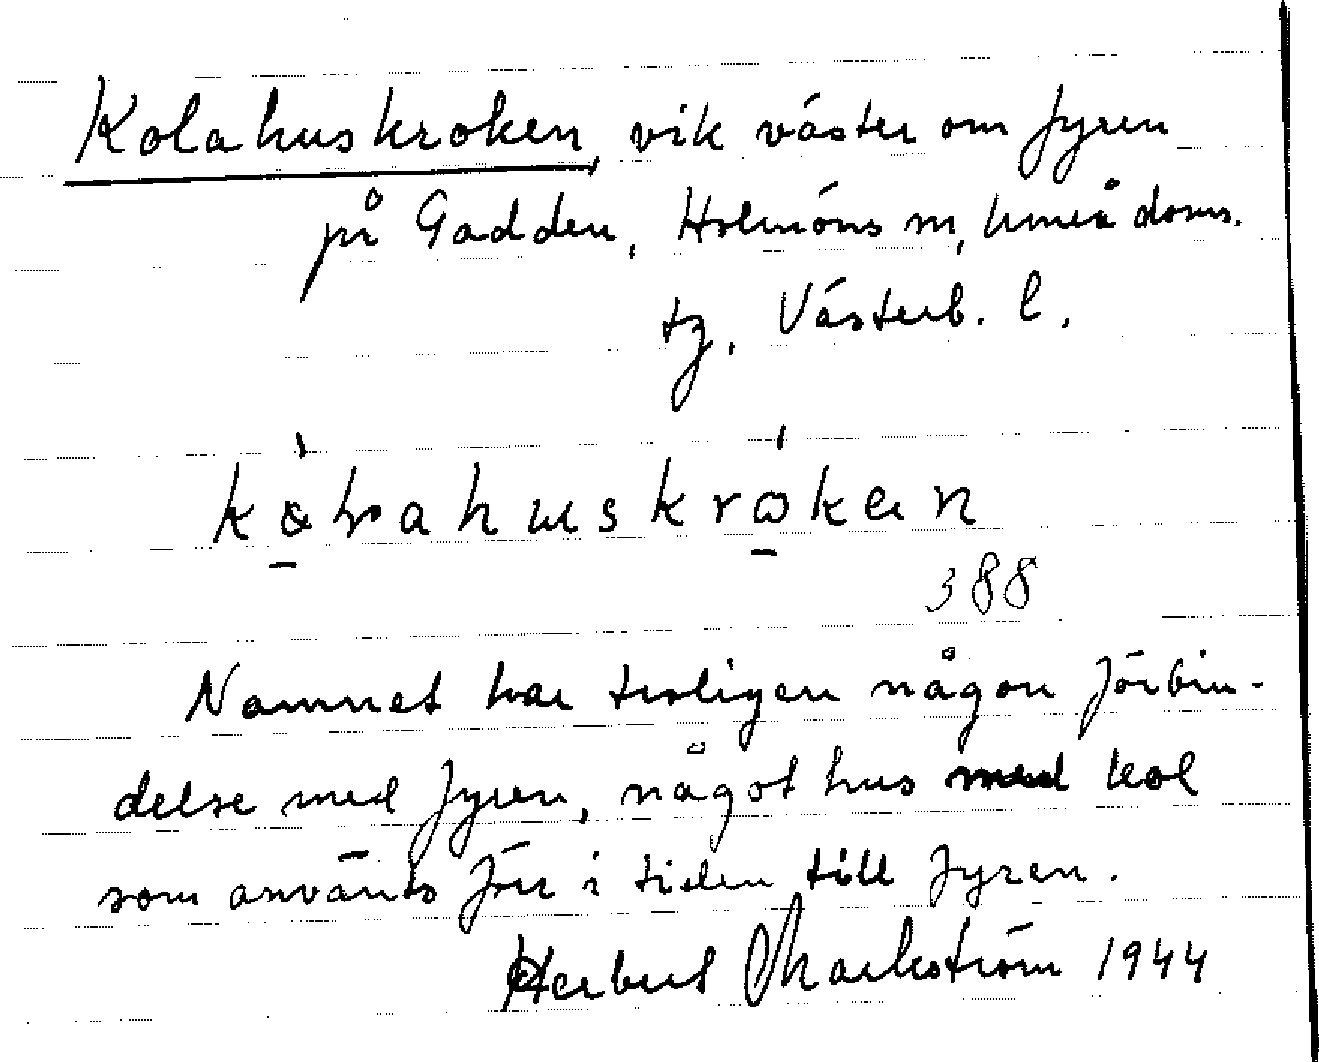 Kolahuskroken, vik väster om fyren
på Gadden, Holmöns sn, Umeå doms.
tg, Västerb. l.
388
Namnet har troligen någon förbin-
delse med fyren, något hus med kol
som använts förr i tiden till fyren.
Herbert Markström 1944